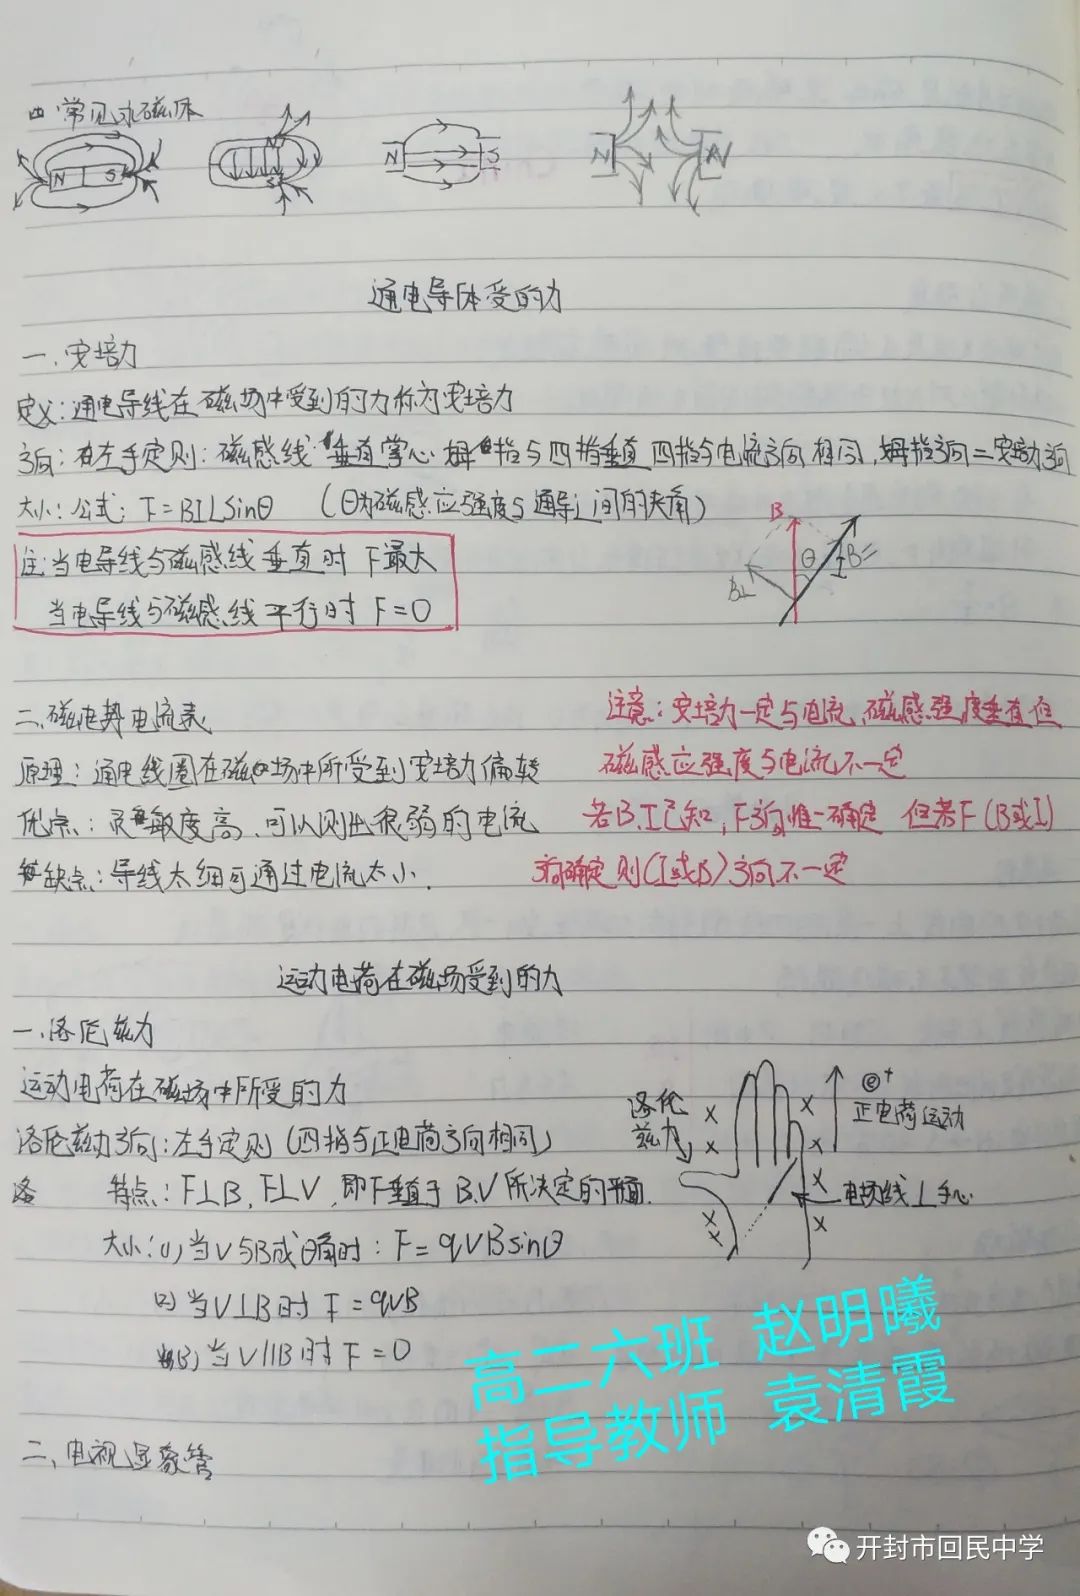 四.常见永磁体
N S
N
S
N S
N N
通电导体受的力
一.安培力
定义:通电导线在磁场中受到的力称为安培力
方向:左手定则:磁感线垂直掌心 拇指与四指垂直 四指与电流方向相同,拇指方向=安培力方向
大小:公式:F=BILsinθ (θ为磁感应强度与通导L间的夹角)
B
θ
B⊥
B=
注:当电导线与磁感线垂直时 F最大
当电导线与磁感线平行时 F=0
二.磁电势电流表
原理:通电线圈在磁场中所受到安培力偏转
优点:灵敏度高,可以测出很弱的电流
缺点:导线太细可通过电流太小.
注意:安培力一定与电流,磁感强度垂直但
磁感应强度与电流不一定
若B、I已知,F方向惟一确定 但若F(B或I)
方向确定则(I或B)方向不一定
运动电荷在磁场受到的力
一.洛伦兹力
运动电荷在磁场中所受的力
洛伦兹力方向:左手定则(四指与正电荷方向相同)
洛 特点:F⊥B,F⊥V,即F垂直于B.V所决定的平面.
大小:(1)当V与B成θ角时:F=qVBsinθ
(2)当V⊥B时 F=qVB
(3)当V∥B时 F=0
洛伦
兹力
正电荷运动
电场线⊥手心
二、电视显象管
高二六班 赵明曦
指导教师 袁清霞
开封市回民中学